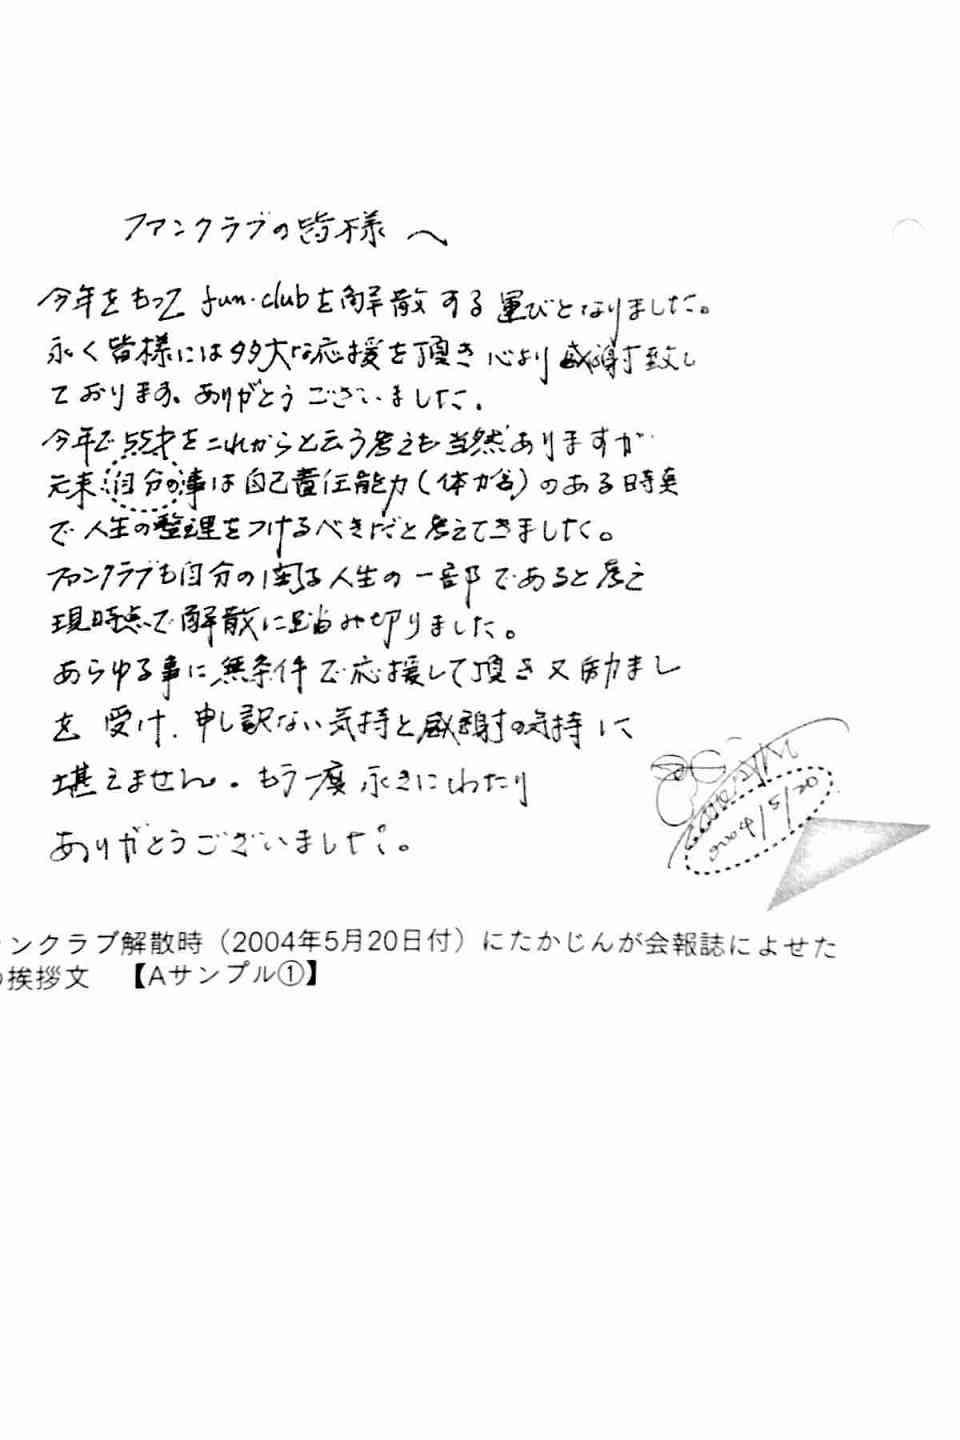 ファンクラブの皆様へ
今年をもって fun・clubを解散する運びとなりました。
永く皆様には多大な応援を頂き心より感謝致し
ております。ありがとうございました。
今年で55才をこれからと云う考えも当然ありますが
元来自分の事は自己責任能力(体力含)のある時期
で人生の整理をつけるべきだと考えてきました。
ファンクラブも自分の係る人生の一部であると考え
現時点で解散に踏み切りました。
あらゆる事に無条件で応援して頂き又励まし
を受け、申し訳ない気持と感謝の気持に
堪えません。もう一度永きにわたり
ありがとうございました。
ンクラブ解散時(2004年5月20日付)にたかじんが会報誌によせた
挨拶文 【Aサンプル①】